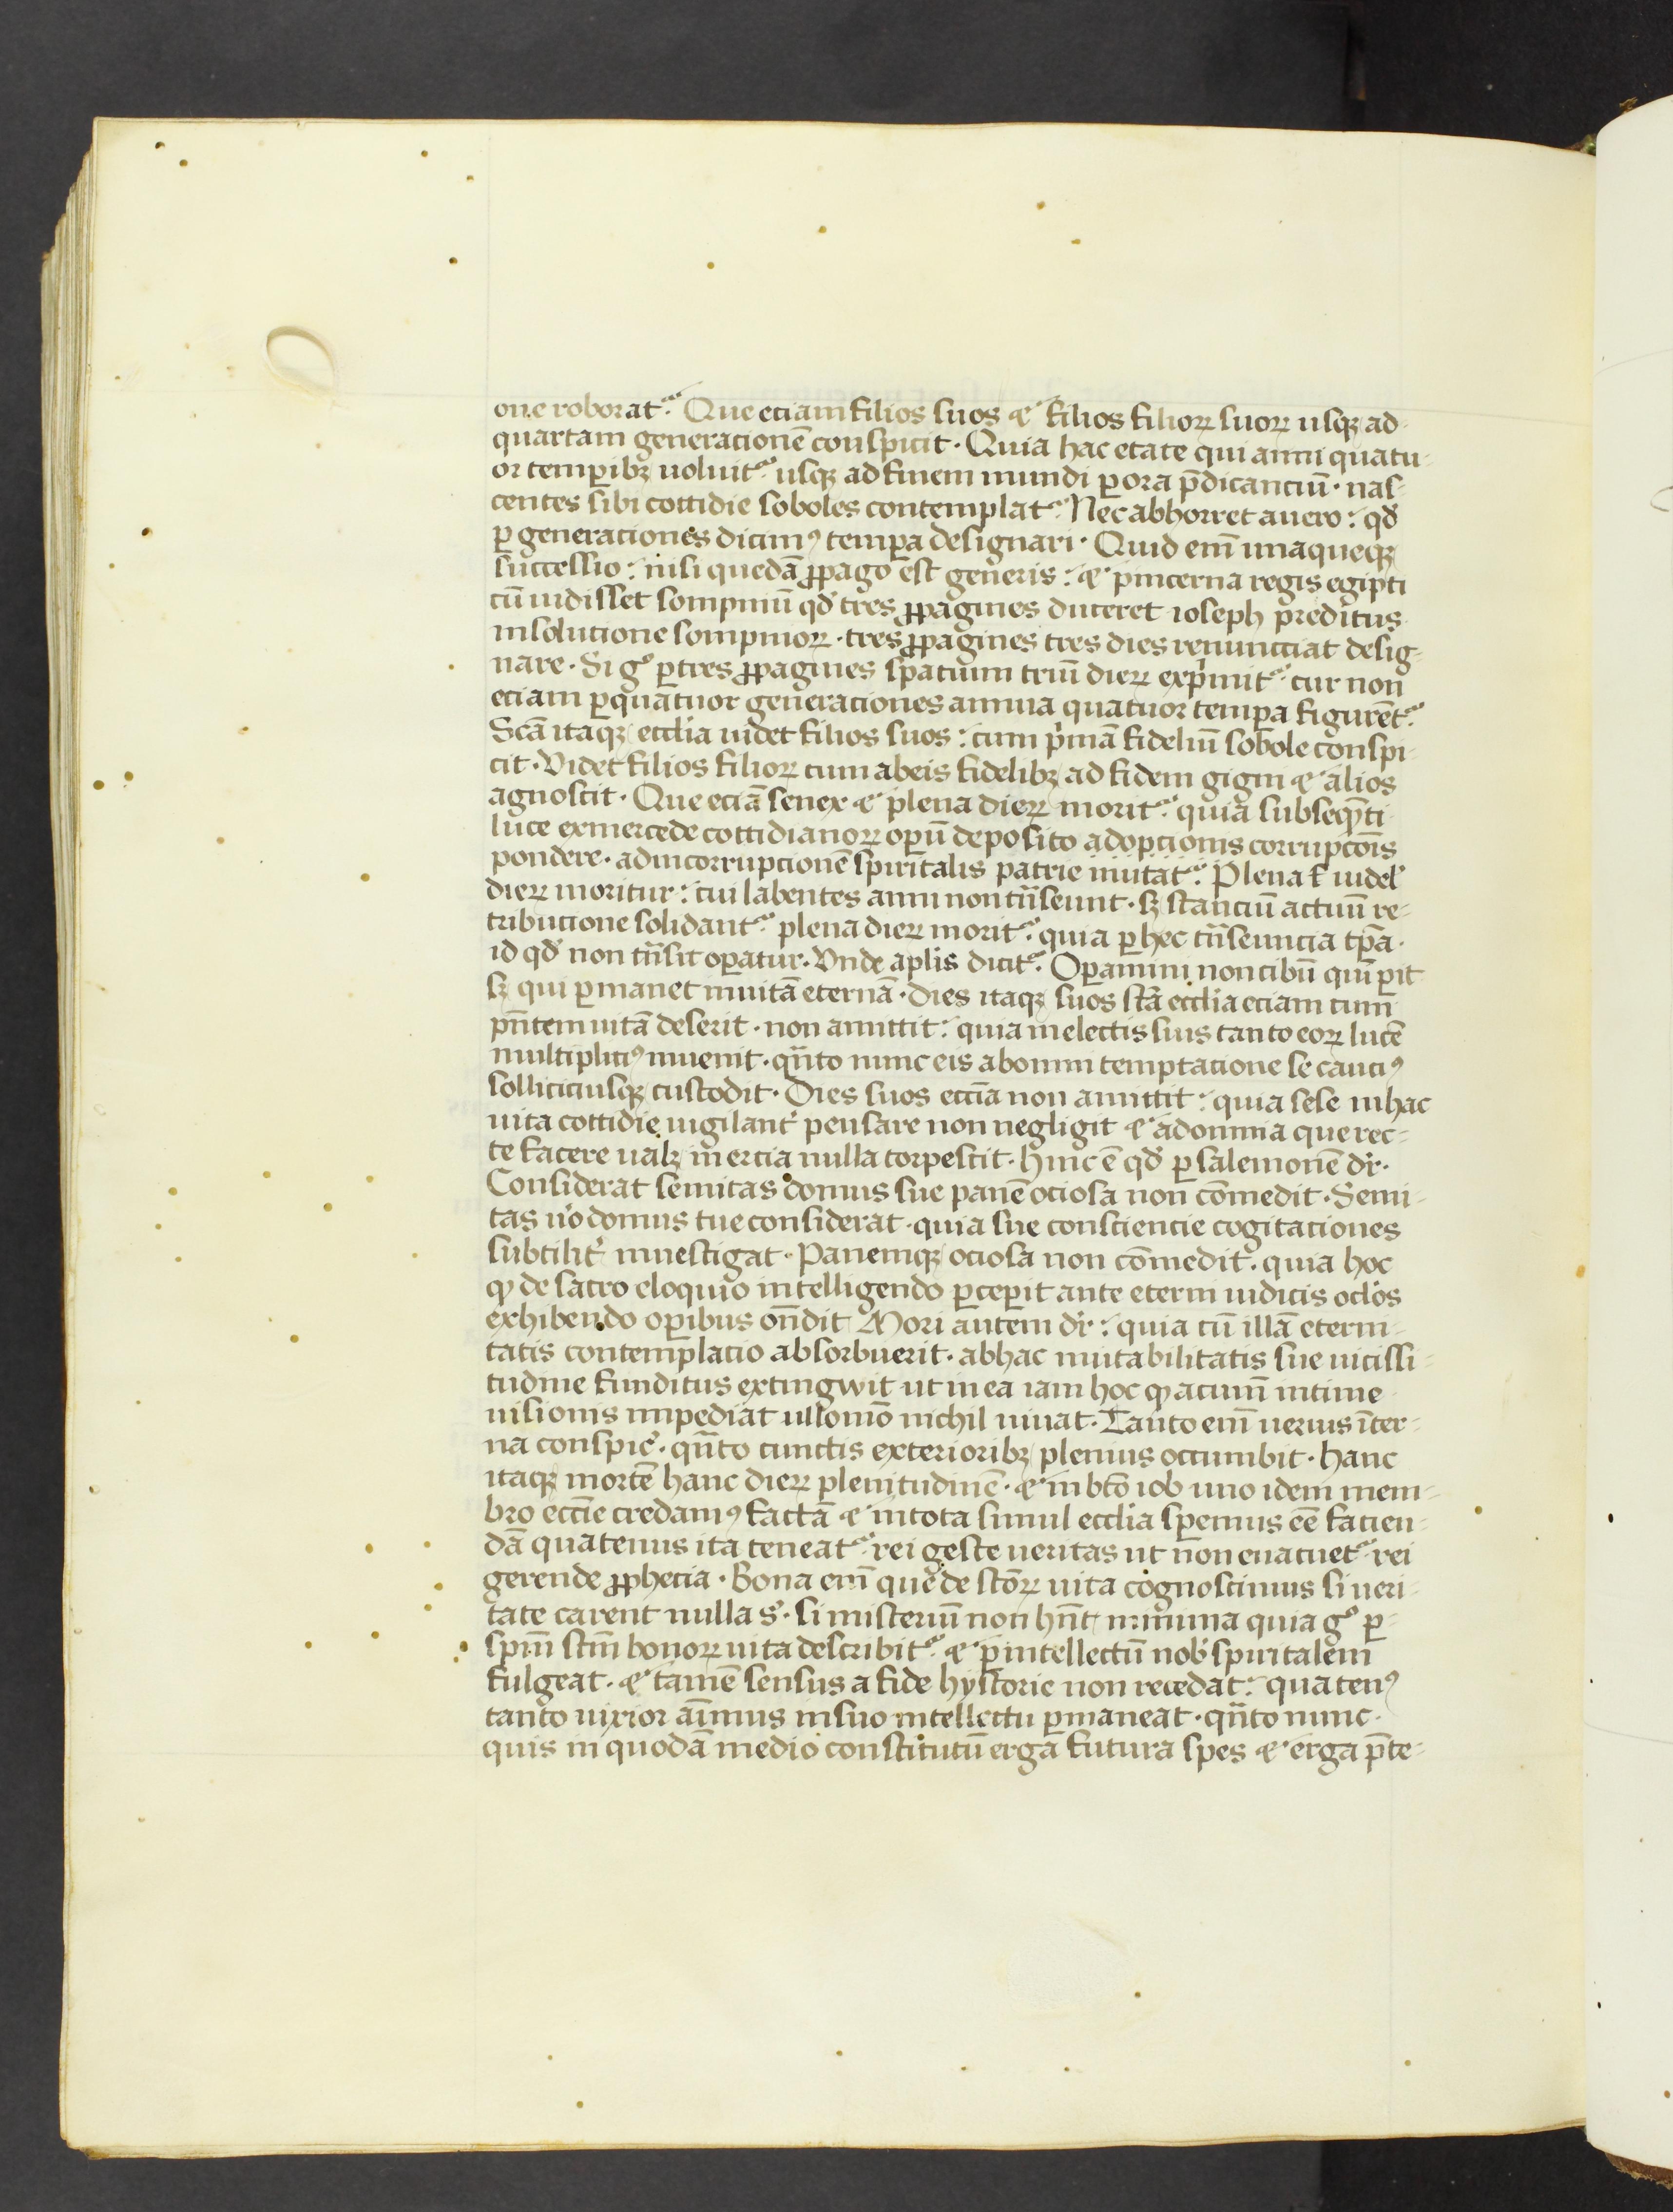 one roborat᷑. Que eciam filios suos ⁊ filios filioꝝ suoꝝ usqꝫ ad-
quartam generacionē conspicit. Quia hac etate qui anni quatu-
or temꝑibꝫ uoluit᷑ usqꝫ ad finem mundi ꝑ ora p̄dicanciū. nas-
centes sibi cottidie soboles contemplat᷑. Nec abhorret a uero: qd̕
ꝑ generaciones dicimꝰ temꝑa designari. Quid em̄ unaqueqꝫ
successio: nisi quedā ꝓpago est generis: ⁊ pincerna regis egipti
cū uidisset sompniū qd̕ tres ꝓpagines duceret ioseph preditus
in solucione sompnioꝝ. tres ꝓpagines tres dies renunciat desig-
nare. Si gͦ ꝑ tres ꝓpagines spatium triū dieꝝ exprimit᷑ cur non
eciam ꝑ quatuor generaciones annua quatuor temꝑa figurēt᷑.
Scā itaqꝫ ecclia uidet filios suos: cum pͥmā fideliū sobole conspi-
cit. Videt filios filioꝝ cum ab eis fidelibꝫ ad fidem gigni ⁊ alios
agnoscit. Que eciā senex ⁊ plena dieꝝ morit᷑ quia subseqn̄ti
luce ex mercede cottidianoꝝ opū deposito adopcionis corrupcōis
pondere. ad incorrupcionē spiritalis patrie mutat᷑. Plena uidel̕
dieꝝ moritur: cui labentes anni non tn̄seunt. sꝫ stanciū actuū re-
tribucione solidant᷑ plena dieꝝ morit᷑. quia ꝑ hec tn̄seuncia tꝑa.
id qd̕ non tn̄sit oꝑatur. Vnde aplis dicit᷑. Oꝑamini non cibū qui ꝑit
sꝫ qui ꝑmanet in uitā eternā. dies itaqꝫ suos scā ecclia eciam cum
pn̄tem uitā deserit. non amittit: quia in electis suis tanto eoꝝ lucē
multipliciꝰ inuenit. qn̄to nunc eis ab omni temptacione se cauciꝰ
solliciciusqꝫ custodit. Dies suos eccia non amittit: quia sese in hac
uita cottidie uigilant̕ pensare non negligit ⁊ ad omnia que rec-
te facere ualꝫ inercia nulla torpescit. Hinc ē qd̕ ꝑ salemonē dr̕.
Considerat semitas domus sue panē ociosa non cōmedit. Semi-
tas u̕o domus tue considerat. quia sue consciencie cogitaciones
subtilit̕ inuestigat. Panemqꝫ ociosa non cōmedit. quia hoc
ꝙ de sacro eloquio intelligendo ꝑceꝑit ante eterni iudicis oclo̕s
exhibendo oꝑibus on̄dit Mori autem dr̕: quia cū illā eterni-
tatis contemplacio absorbuerit. ab hac mutabilitatis sue uicissi-
tudine funditus extingwit ut in ea iam hoc ꝙ acumē intime
uisionis impediat ullomō nichil uiuat. Tanto em̄ uerius īter-
na conspic̕. qn̄to cunctis exterioribꝫ plenius occumbit. Hanc
itaqꝫ mortē hanc dieꝝ plenitudinē. ⁊ in btō iob uno idem mem-
bro eccie credamꝰ factā ⁊ in tota simul ecclia sꝑemus eē facien-
dā quatenus ita teneat᷑ rei geste ueritas ut non euacuet᷑ rei
gerende ꝓphecia. Bona em̄ que de sctōꝝ uita cognoscimus si ueri-
tate carent nulla s̕. si misteriū non hn̄t minima quia gͦ ꝑ-
spm̄ sctm̄ bonoꝝ uita describit᷑ ⁊ ꝑ intellectū nob̕ spiritalem
fulgeat. ⁊ tamē sensus a fide hystorie non recedat: quatenꝰ
tanto uixior aīmus in suo intellectu ꝑmaneat. qn̄to nunc.
quis in quodā medio constitutū erga futura spes ⁊ erga p̄te-